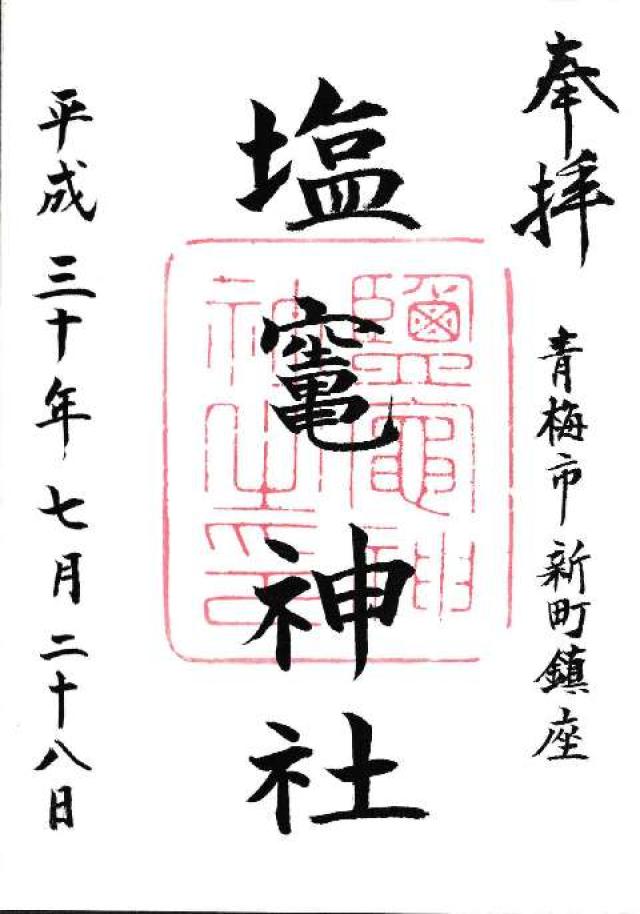 奉拝
青梅市新町鎮座
塩竈神社
鹽竈神
社之印
平成三十年七月二十八日